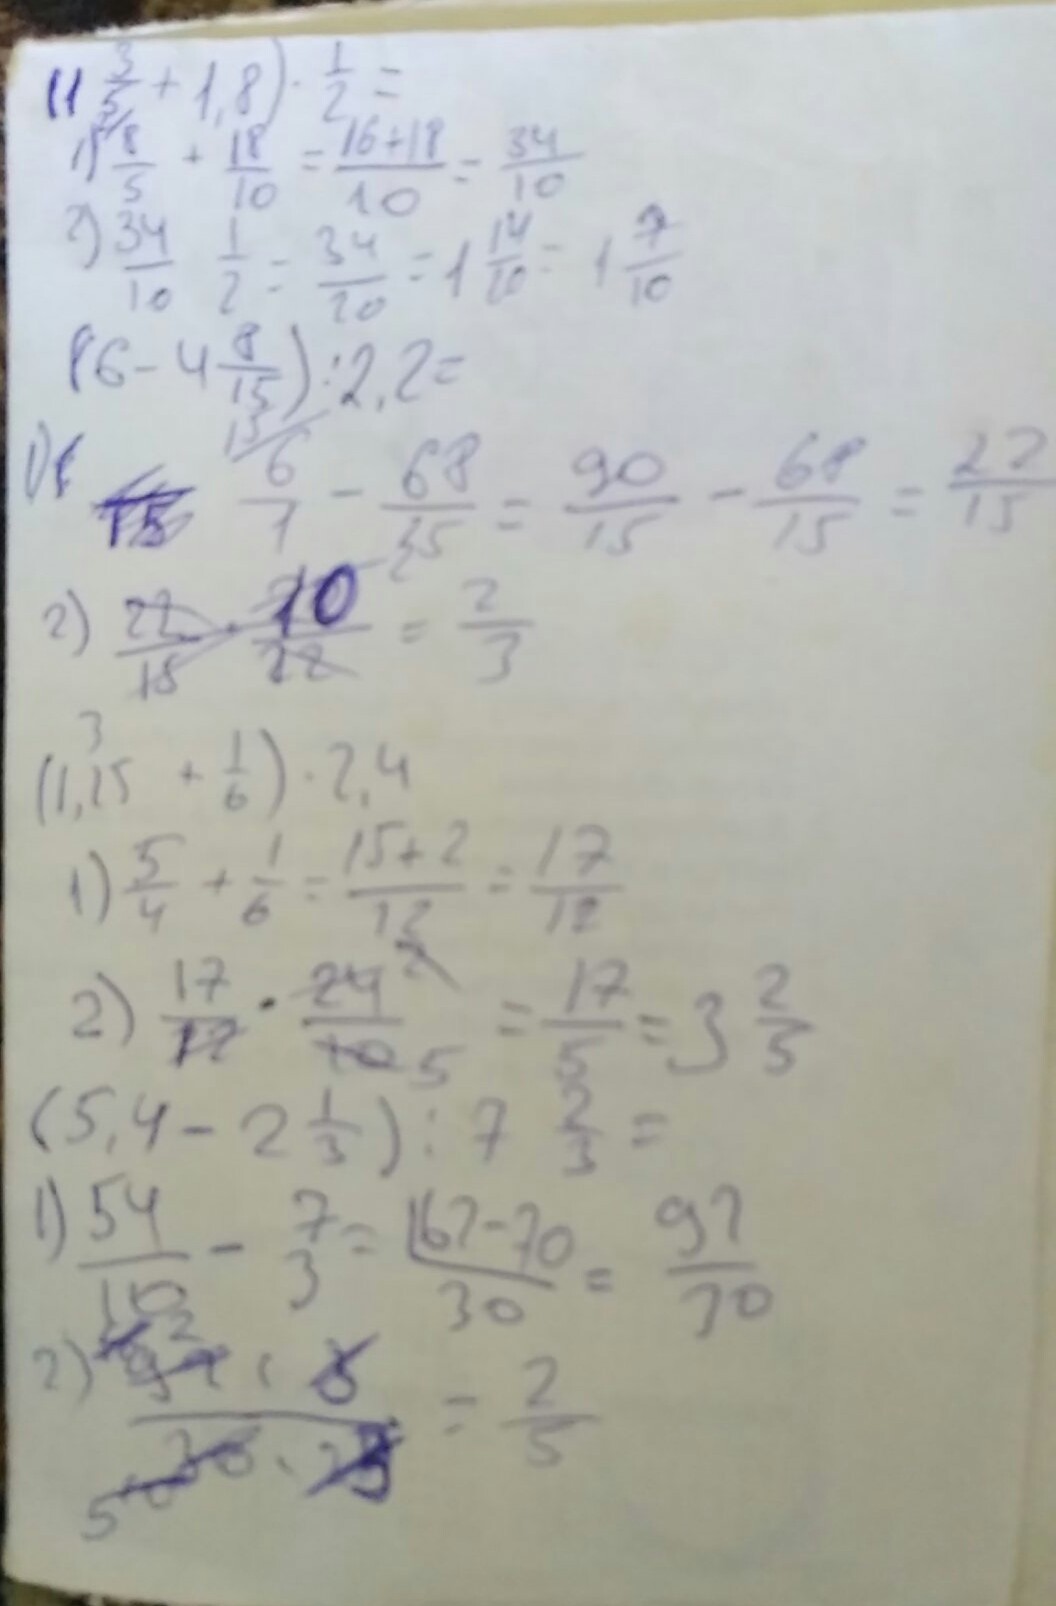 (1 3/5 + 1,8) · 1/2 =
1) 8/5 + 18/10 = 16+18/10 = 34/10
2) 34/10 1/2 = 34/20 = 1 14/20 = 1 7/10
(6 - 4 8/15) : 2,2 =
1) 6/1 - 68/15 = 90/15 - 68/15 = 22/15
2) 22/15 · 10/22 = 2/3
(1,25 + 1/6) · 2,4
1) 5/4 + 1/6 = 15+2/12 = 17/12
2) 17/12 · 24/10 = 17/5 = 3 2/5
(5,4 - 2 1/3) : 7 2/3 =
1) 54/10 - 7/3 = 162-70/30 = 92/30
2) = 2/5